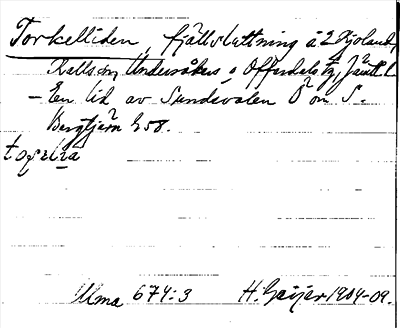 Torkelliden, fjällsluttning å 2 Kjoland,
Kalls sn, Undersåkers o Offerdals tg, Jämtl. l.
— En lid av Sundevalen Ö om S.
Bergtjärn G58.
Ulma 674:3 H. Geijer 1904-09.